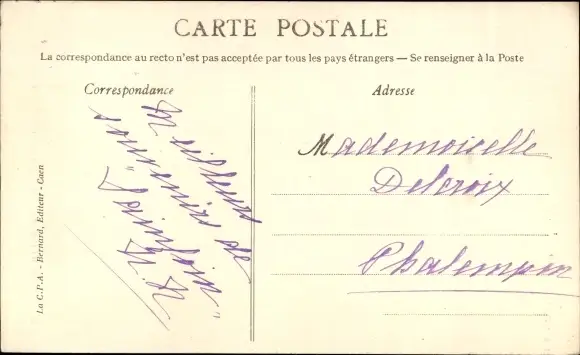 CARTE POSTALE
La correspondance au recto n'est pas acceptée par tous les pays étrangers — Se renseigner à la Poste
Correspondance
Adresse
Meilleurs
souvenirs de
"Sainfoin"
Mademoiselle
Delcroix
Phalempin
La C.P.A. - Bernard, Editeur - Caen